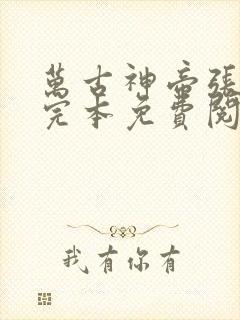 萬古神帝張
完本免費閱
我有你有